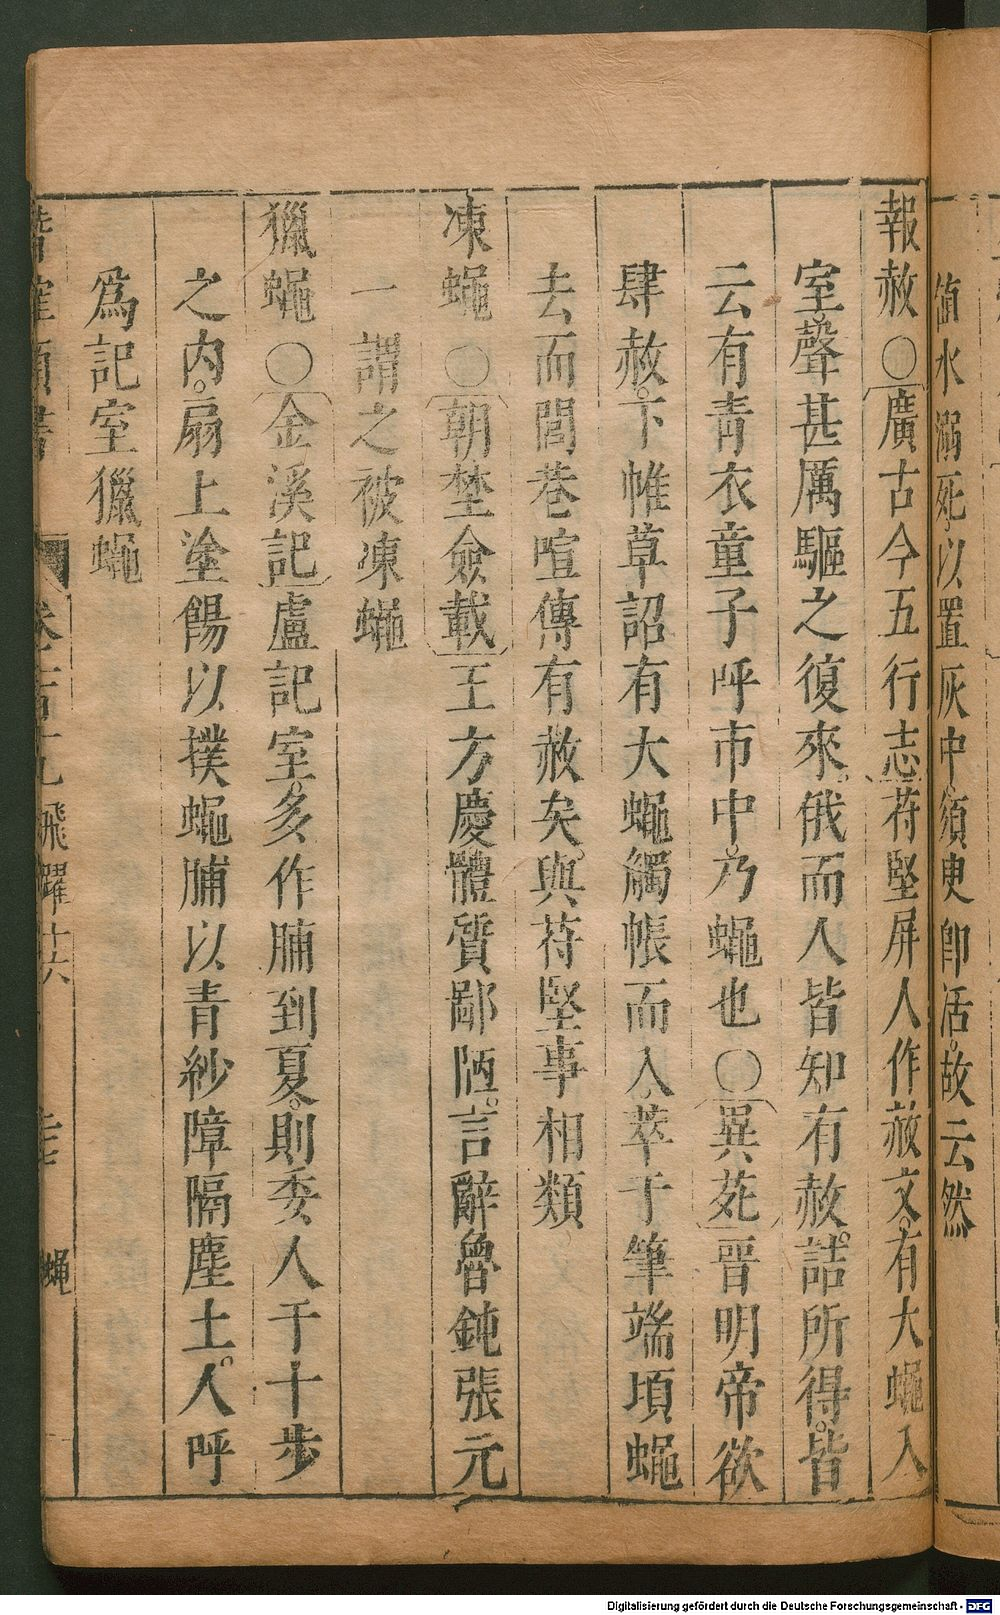 水溺死以置灰中須臾卽活故云然
報赦〇廣古今五行志苻堅屏人作赦文有大蠅入
室聲甚厲驅之復來俄而人皆知有赦詰所得皆
云有靑衣童子呼市中乃蠅也〇異苑晋明帝欲
肆赦下帷草詔有大蠅觸帳而入萃于筆端頃蠅
去而閭巷喧傳有赦矣與苻堅事相類
凍蠅〇朝埜僉載王方慶體質鄙陋言辭魯鈍張元
一謂之被凍蠅
獵蠅〇金溪記盧記室多作脯到夏則委人于十步
之內扇上塗餳以撲蠅脯以青紗障隔塵土人呼
爲記室獵蠅
飛躍十六 蠅
Digitalisierung gefördert durch die Deutsche Forschungsgemeinschaft - DFG